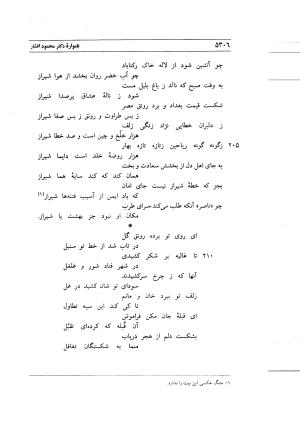 ۵۳۰۶
نامواره دکتر محمود افشار
چو آتشین شود از لاله خاک رکناباد
چو آب خضر روان بخشد از هوا شیراز
به وقت صبح که نالد ز باغ بلبل مست
شود ز نالهٔ عشاق پرصدا شیراز
شکست قیمت بغداد و برد رونق مصر
ز بس طراوت و رونق ز بس صفا شیراز
ز دلبران خطایی نژاد زنگی زلف
هزار خلخ و چین است و صد خطا شیراز
۲۰۵ زگونه گونه ریاحین زتازه تازه بهار
هزار روضهٔ خلد است دایما شیراز
به جای اهل دل از بخشش سعادت و بخت
همان کند که کند سایهٔ هما شیراز
بجز که خطهٔ شیراز نیست جای امان
که باد ایمن از آسیب فتنه‌ها شیراز(۱)
چو «ناصر» آنکه طلب می‌کند سرای طرب
مکان او نبود جز بهشت یا شیراز.
ای روی تو برده رونق گل
در تاب شد از خط تو سنبل
۲۱۰ تا غالیه بر شکر کشیدی
در شهر فتاد شور و غلغل
آنها که ز چرخ سرکشیدند
سودای تو شان کشید در غل
زلف تو ببرد خان و مانم
تا کی کند این سیه تطاول
ای قبلهٔ جان مکن فراموش
آن قبله که کرده‌ای تقبّل
بشکست دلم از هجر دریاب
منما به شکستگان تغافل
۱- جنگ عکسی این بیت را ندارد.